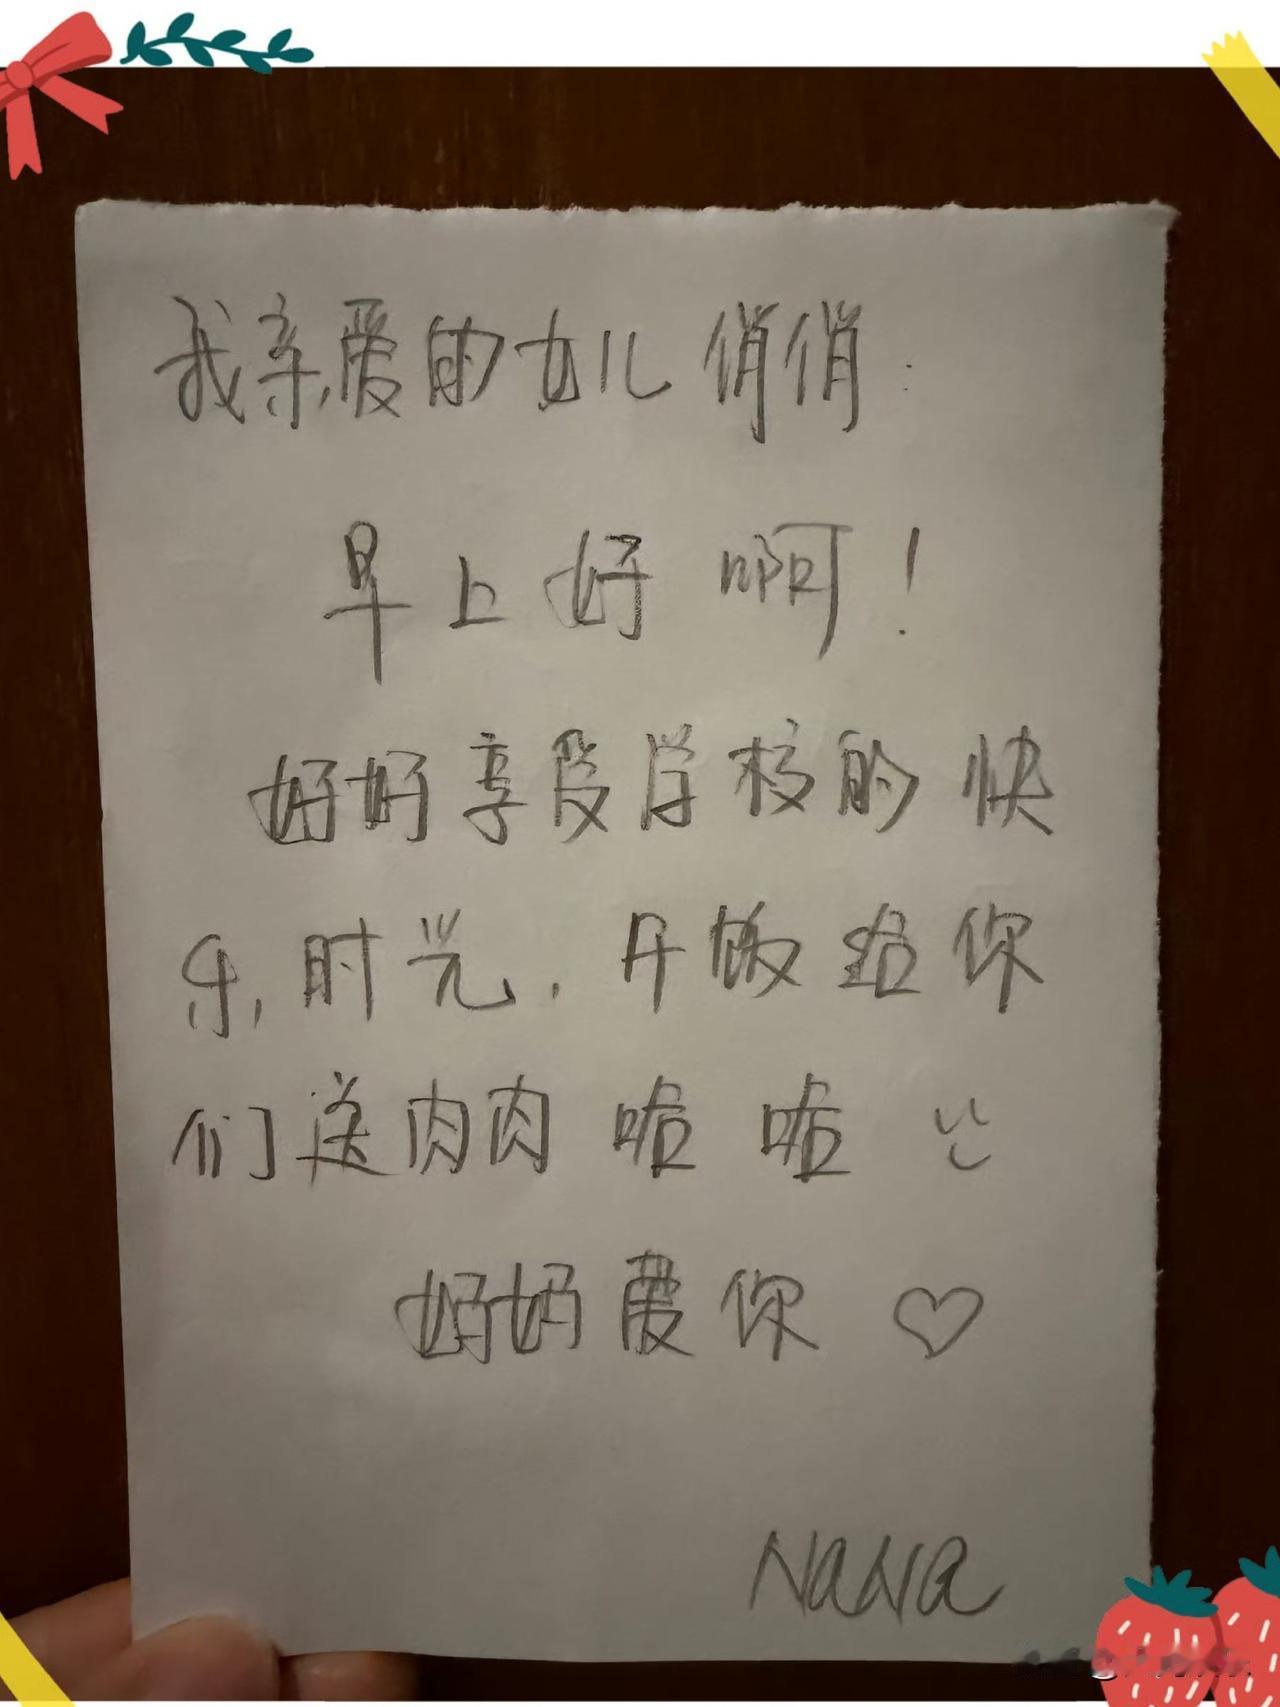 我亲爱的女儿俏俏：
早上好啊！
好好享受学校的快
乐，时光，午饭给你
们送肉肉咯咯
妈妈爱你♡
NaNa